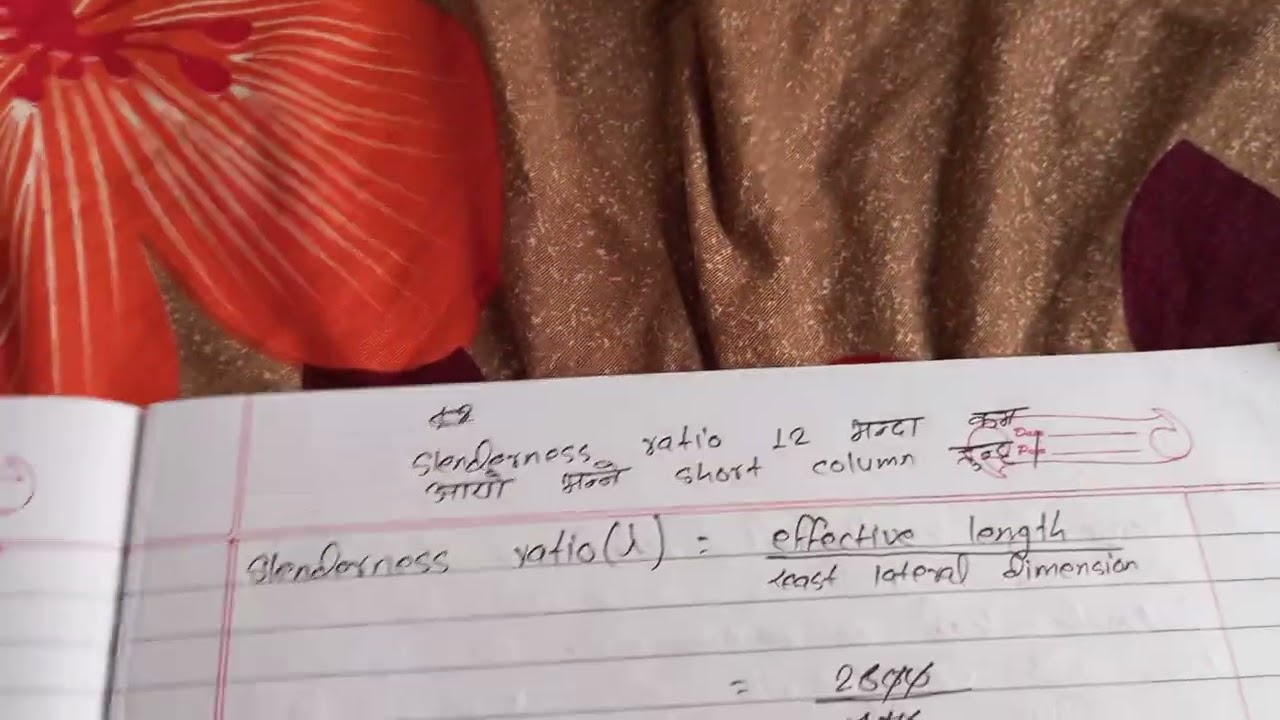 Slenderness ratio 12 भन्दा कम
आयो भन्ने short column हुन्छ।
Slenderness ratio (λ) = effective length
least lateral dimension
=